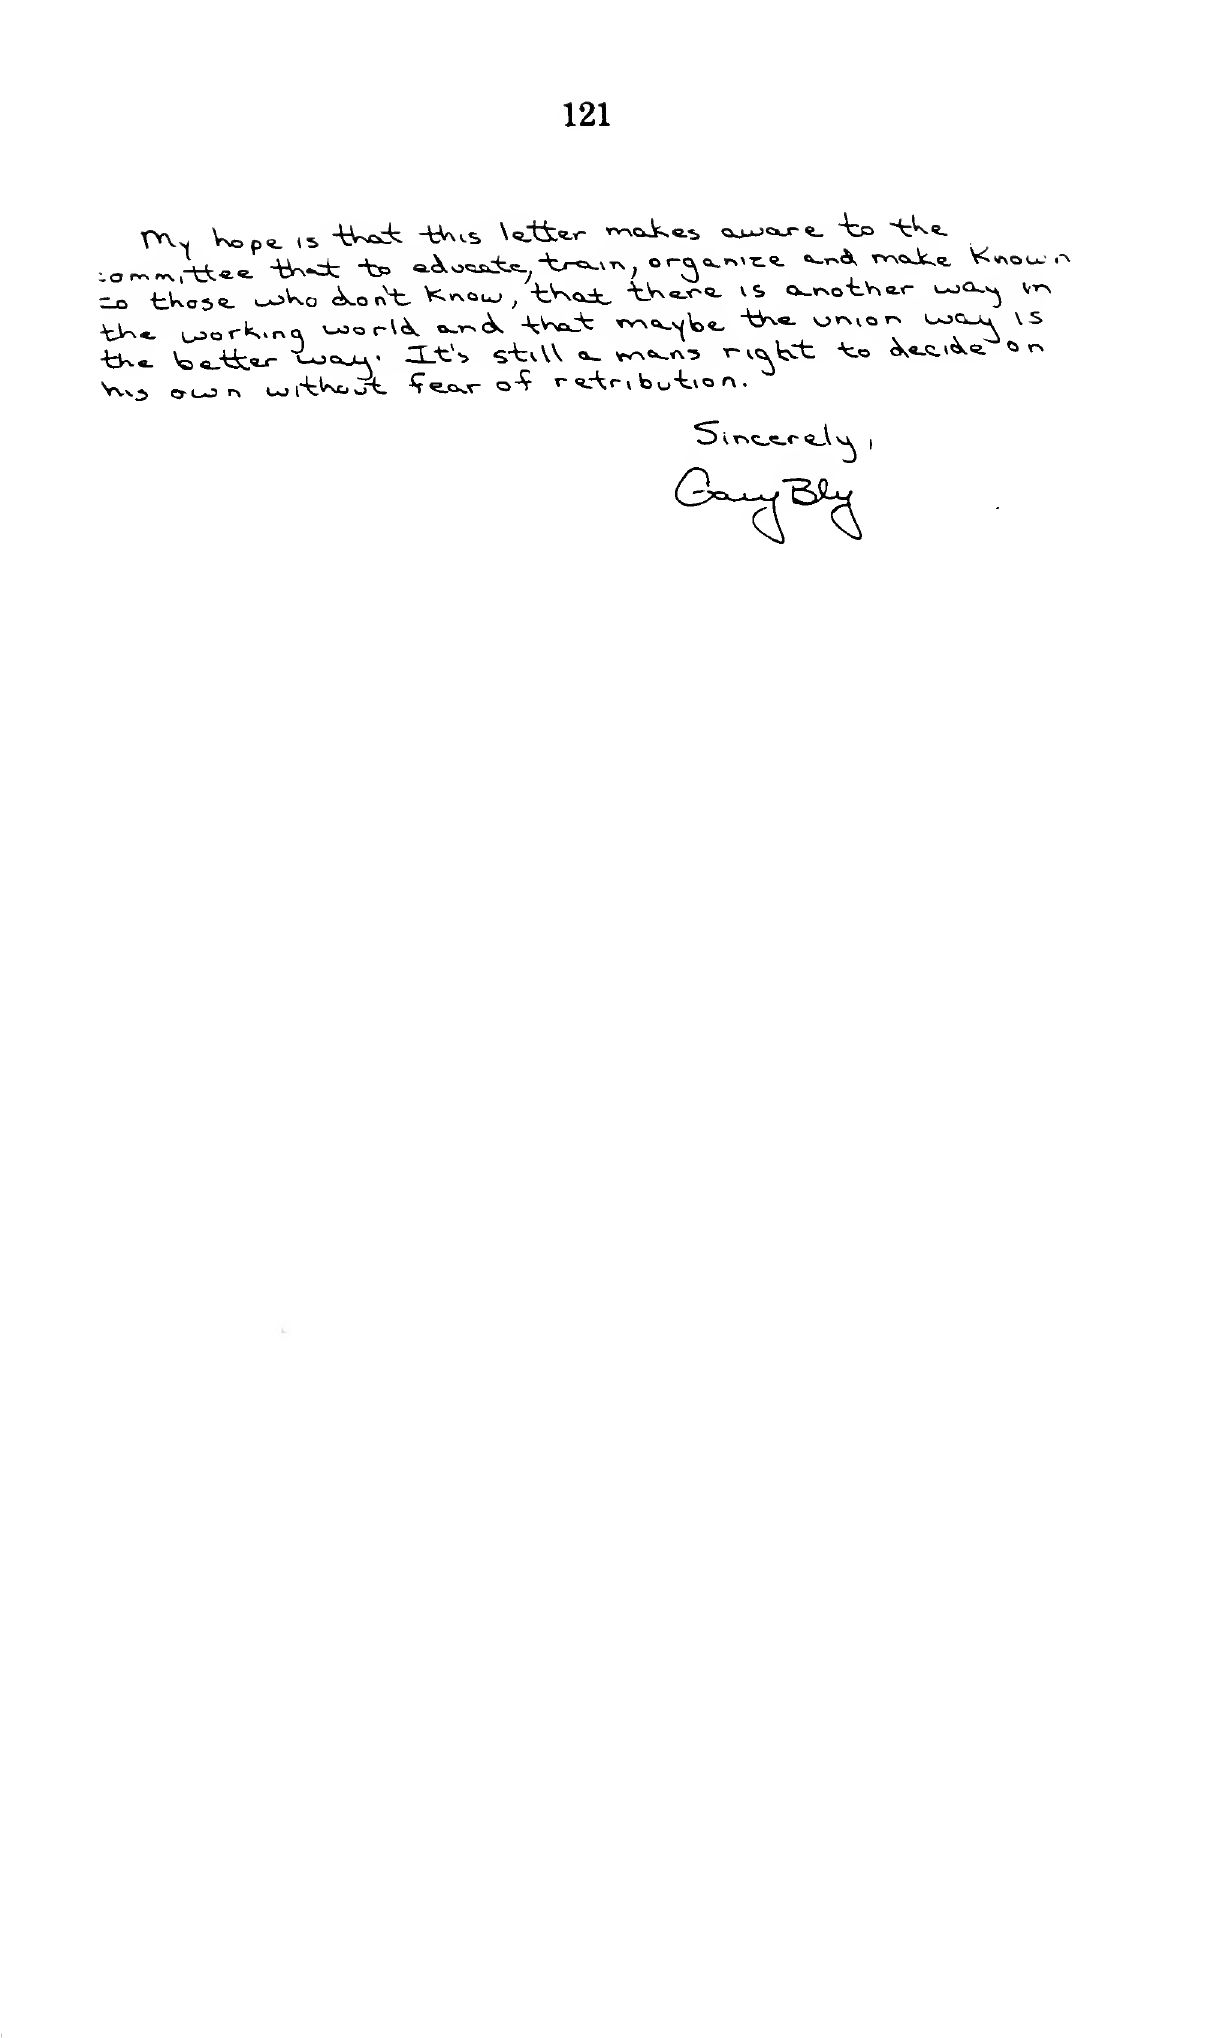 121
My hope is that this letter makes aware to the
committee that to educate, train, organize and make known
to those who don't know, that there is another way in
the working world and that maybe the union way is
the better way. It's still a mans right to decide on
his own without fear of retribution.
Sincerely,
Gary Bly